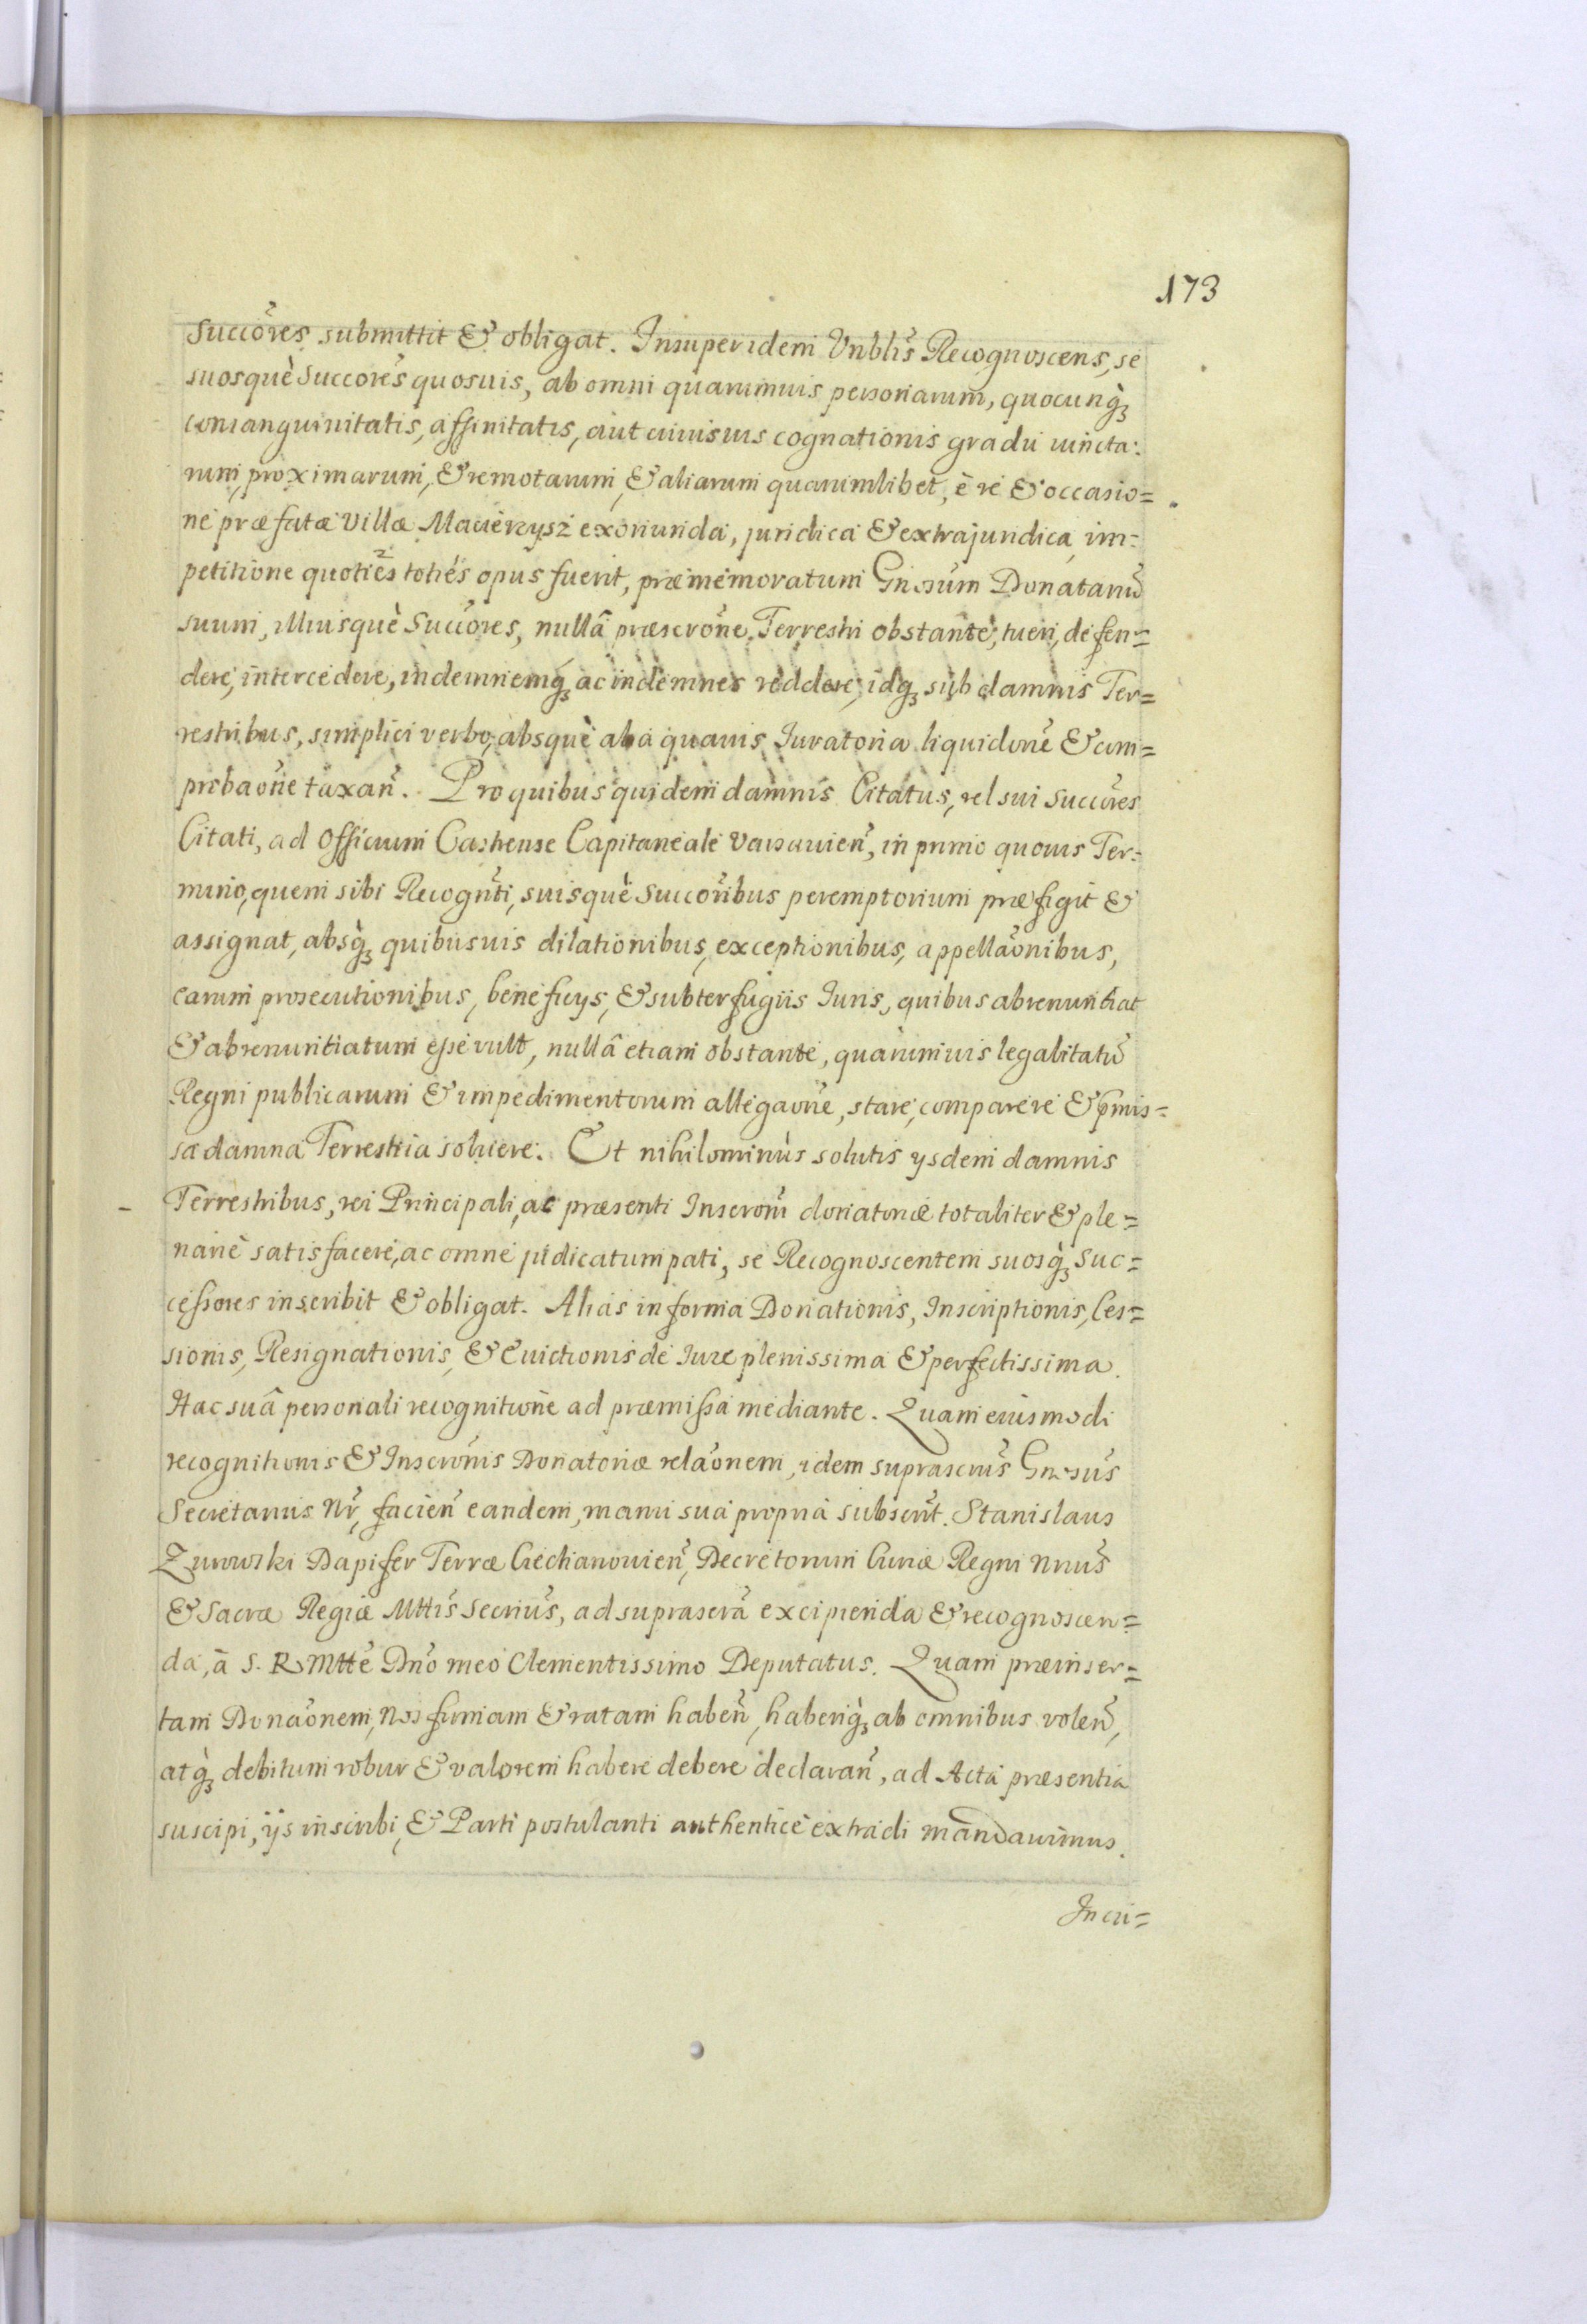 173
Succõres submittit & obligat. Insuper idem Vrblĩs Recognoscens, se
suosquè Succorẽs quosuis, ab omni quarumuis personarum, quocunq̀
consanguinitatis, affinitatis, aut cuiusuis cognationis gradu iuncta:
rum, proximarum, & remotarum, & aliarum quarumlibet, è re & occasio=
ne præfatæ Villæ Macierzysz exoriunda, juridica & extrajuridica im=
petitione quotiẽs totiẽs opus fuerit, præmemoratum Gnosũm Donatariũ
suum, illiusquè Succõres, nullâ præscrõne Terrestri obstante, tueri, defen=
dere, intercedere, indemnemq́ ac indemnes reddere, idq́ sub damnis Ter=
restribus, simplici verbo, absquè alia quauis Iuratoria liquidõne & com=
prõbaõne taxañ. Pro quibus quidem damnis Citatus, vel sui Succõres
Citati, ad Officium Castrense Capitaneale Varsauieñ, in primo quouis Ter=
mino, quem sibi Recogñti, suisquè Succorĩbus peremptorium præfigit &
assignat, absq̀ quibusuis dilationibus, exceptionibus, appellaõnibus,
earum prosecutionibus, beneficys, & subterfugiis Iuris, quibus abrenuntiat
& abrenuntiatum esse vult, nullâ etiam obstante, quarumuis legalitatũ
Regni publicarum & impedimentorum allegaõne, stare, comparere & p̃mis=
sa damna Terrestria soluere. Et nihilominùs solutis ysdem damnis
Terrestribus, rei Principali, ac præsenti Inscrõni donatoriæ totaliter & ple=
nariè satisfacere, ac omne judicatum pati, se Recognoscentem suosq̀ Suc=
cessores inscribit & obligat. Aliàs in forma Donationis, Inscriptionis, Ces=
sionis, Resignationis, & Euictionis de Iure plenissima & perfectissima.
Hac suâ personali recognitione ad præmissa mediante. Quam eiusmodi
recognitionis & Inscrõnis Donatoriæ relaõnem, idem suprascrũs Gnosũs
Secretarius Nr̃, facieñ eandem, manu sua propria subscrĩt. Stanislaus
Zurowski Dapifer Terræ Ciechanouieñ, Decretorum Curiæ Regni Nrũs
& Sacræ Regiæ Mttĩs Secriũs, ad suprascrã excipienda & recognoscen=
da, à S. R. Mttẽ Dño meo Clementissimo Deputatus. Quam præinser=
tam Donaõnem, Nos firmam & ratam habeñ, haberiq̀ ab omnibus voleñ,
atq̀ debitum robur & valorem habere debere declarañ, ad Acta præsentia
suscipi, ijs inscribi, & Parti postulanti authenticè extradi mandauimus.
Incri=